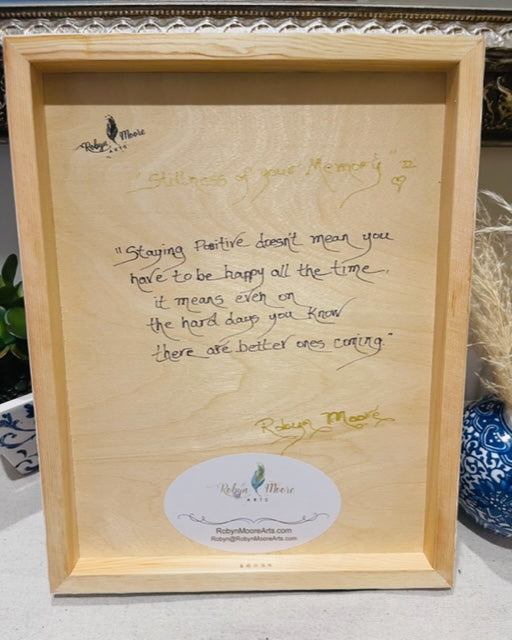 Robyn Moore
ARTS
"Stillness of your Memory" 22
"Staying Positive doesn't mean you
have to be happy all the time..
it means even on
the hard days you know
there are better ones coming."
Robyn Moore
Robyn Moore
ARTS
RobynMooreArts.com
Robyn@RobynMooreArts.com